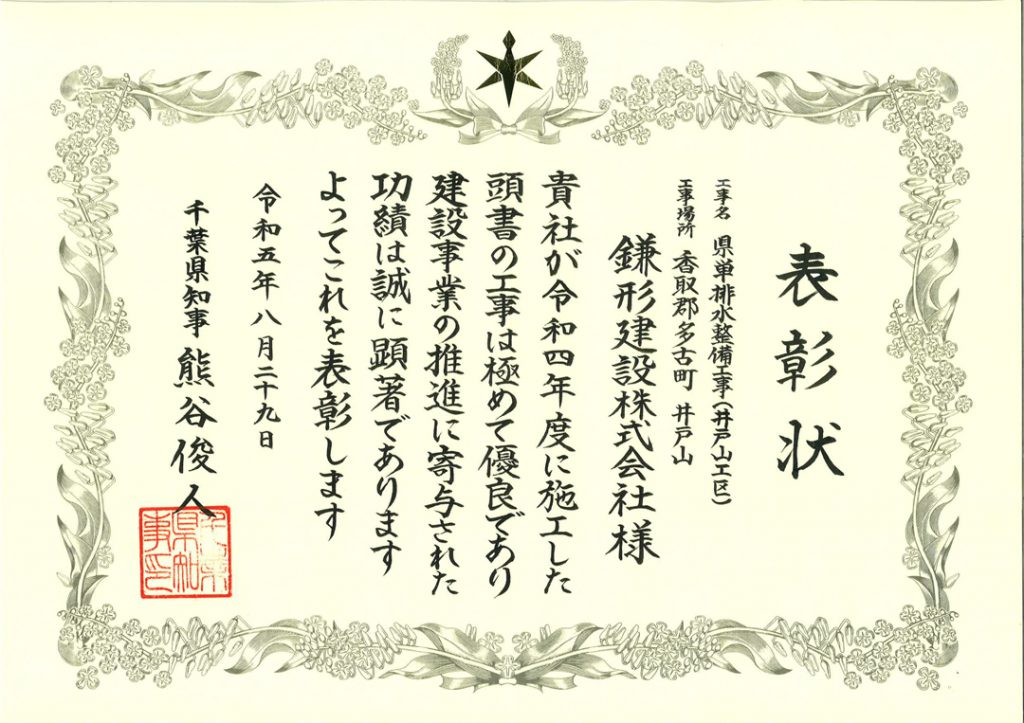 表彰状
工事名 県単排水整備工事(井戸山工区)
工事場所 香取郡多古町 井戸山
鎌形建設株式会社様
貴社が令和四年度に施工した
頭書の工事は極めて優良であり
建設事業の推進に寄与された
功績は誠に顕著であります
よってこれを表彰します
令和五年八月二十九日
千葉県知事 熊谷俊人
千葉県知事印